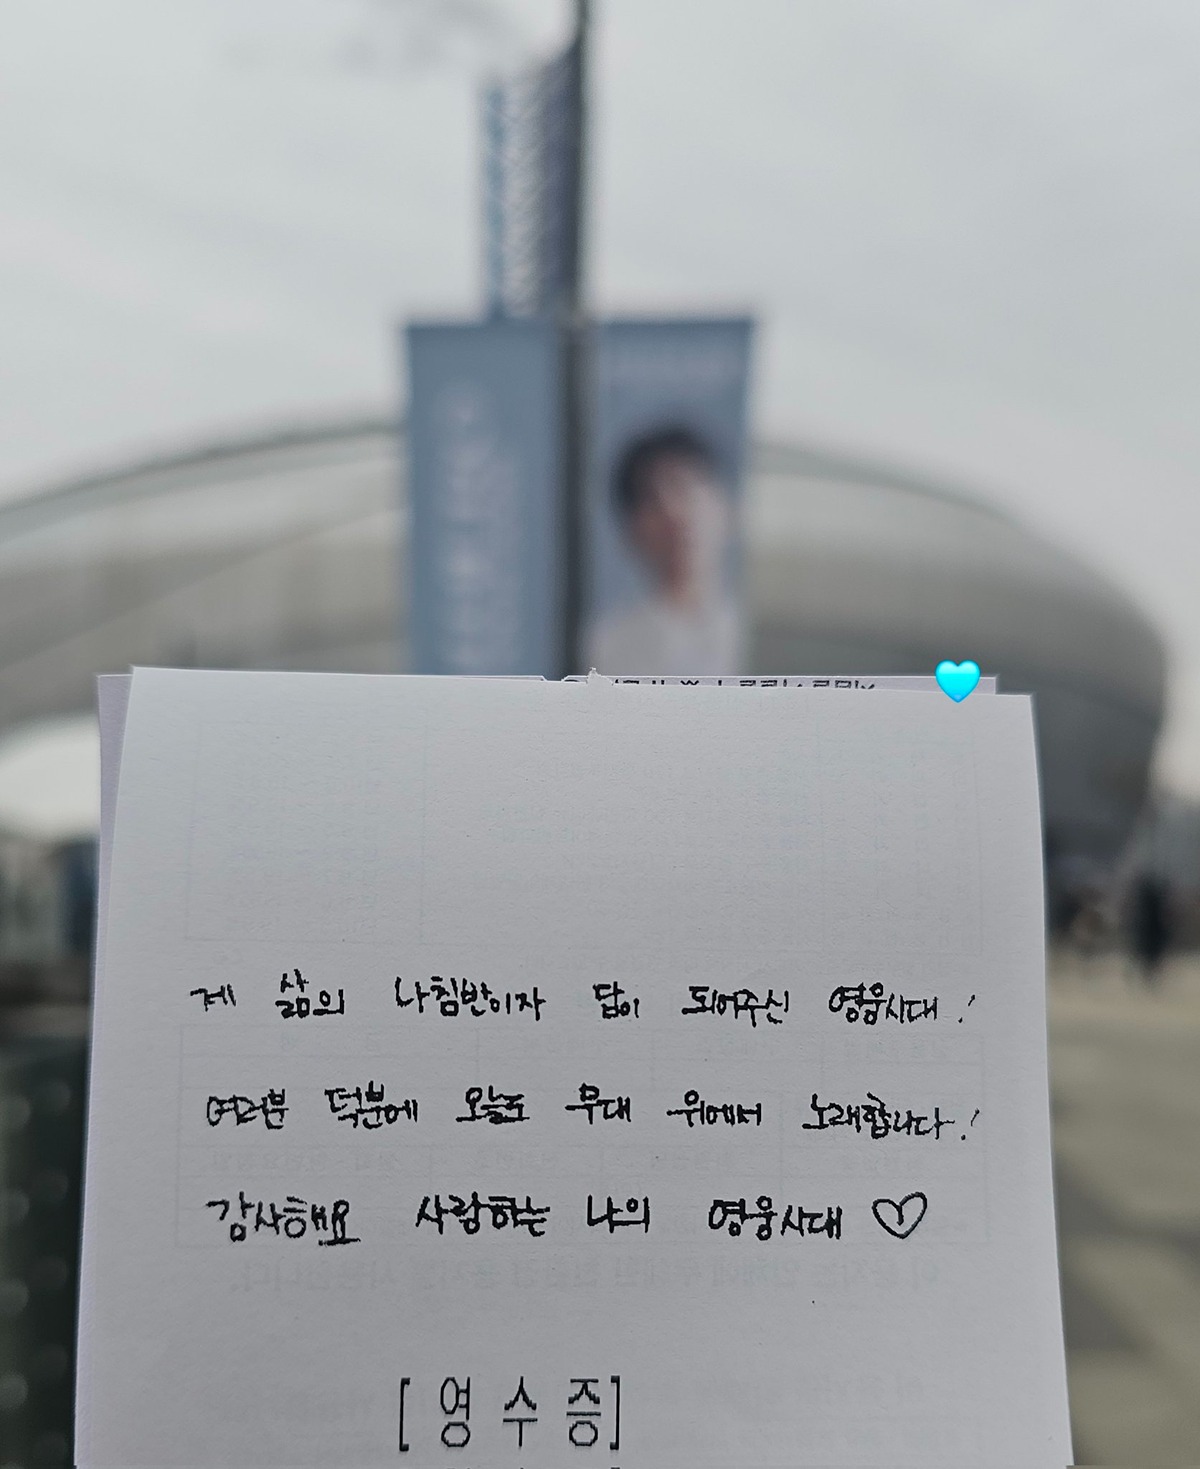 제 삶의 나침반이자 답이 되어주신 영웅시대!
여러분 덕분에 오늘도 무대 위에서 노래합니다!
감사해요 사랑하는 나의 영웅시대 ♡
[영수증]